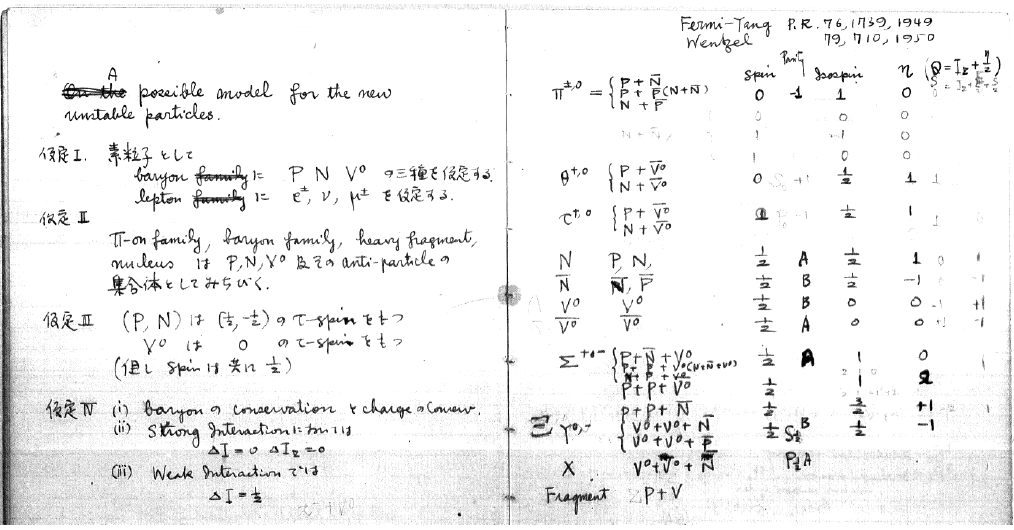 A
possible model for the new
unstable particles.
仮定I. 素粒子として
baryon family に P N V⁰ の三種を仮定する.
lepton family に e±, ν, μ± を仮定する.
仮定 II
π-on family, baryon family, heavy fragment,
nucleus は P, N, V⁰ 及その anti-particle の
集合体としてみちびく.
仮定 III (P, N) は (½, -½) の τ-spin をもつ
V⁰ は 0 の τ-spin をもつ
(但し spin は共に ½)
仮定 IV (i) baryon の conservation と charge の Conserv.
(ii) Strong Interaction に於ては
ΔI = 0 ΔIz = 0
(iii) Weak Interaction では
ΔI = ½
Fermi-Yang P.R. 76, 1739, 1949
Wentzel 79, 710, 1950
Spin Parity Isospin η (Q = Iz + η/2)
π±,0 = { P + N̄ 0 -1 1 0
P + P̄ (N + N̄)
N + P̄
0 0 0
1 1 0
1 0 0
θ+,0 { P + V̄⁰ 0 ½ 1 1
N + V̄⁰
τ+,0 { P + V̄⁰ ½ 1
N + V̄⁰
N P, N, ½ A ½ 1 0
N̄ N̄, P̄ ½ B ½ -1 -1
V⁰ V⁰ ½ B 0 0 -1 +1
V̄⁰ V̄⁰ ½ A 0 0 -1
Σ+0- { P + N̄ + V⁰ ½ A 1 0
P + P̄ + V⁰ (N + N̄ + V⁰)
N + P̄ + V⁰
P + P + V̄⁰ ½ 1 2
P + P + N̄ ½ 3/2 +1
Ξ Y⁰,- { V⁰ + V⁰ + N̄ ½ B ½ -1
V⁰ + V⁰ + P̄ S½
X V⁰ + V⁰ + N̄ P½ A
Fragment ΣP + V